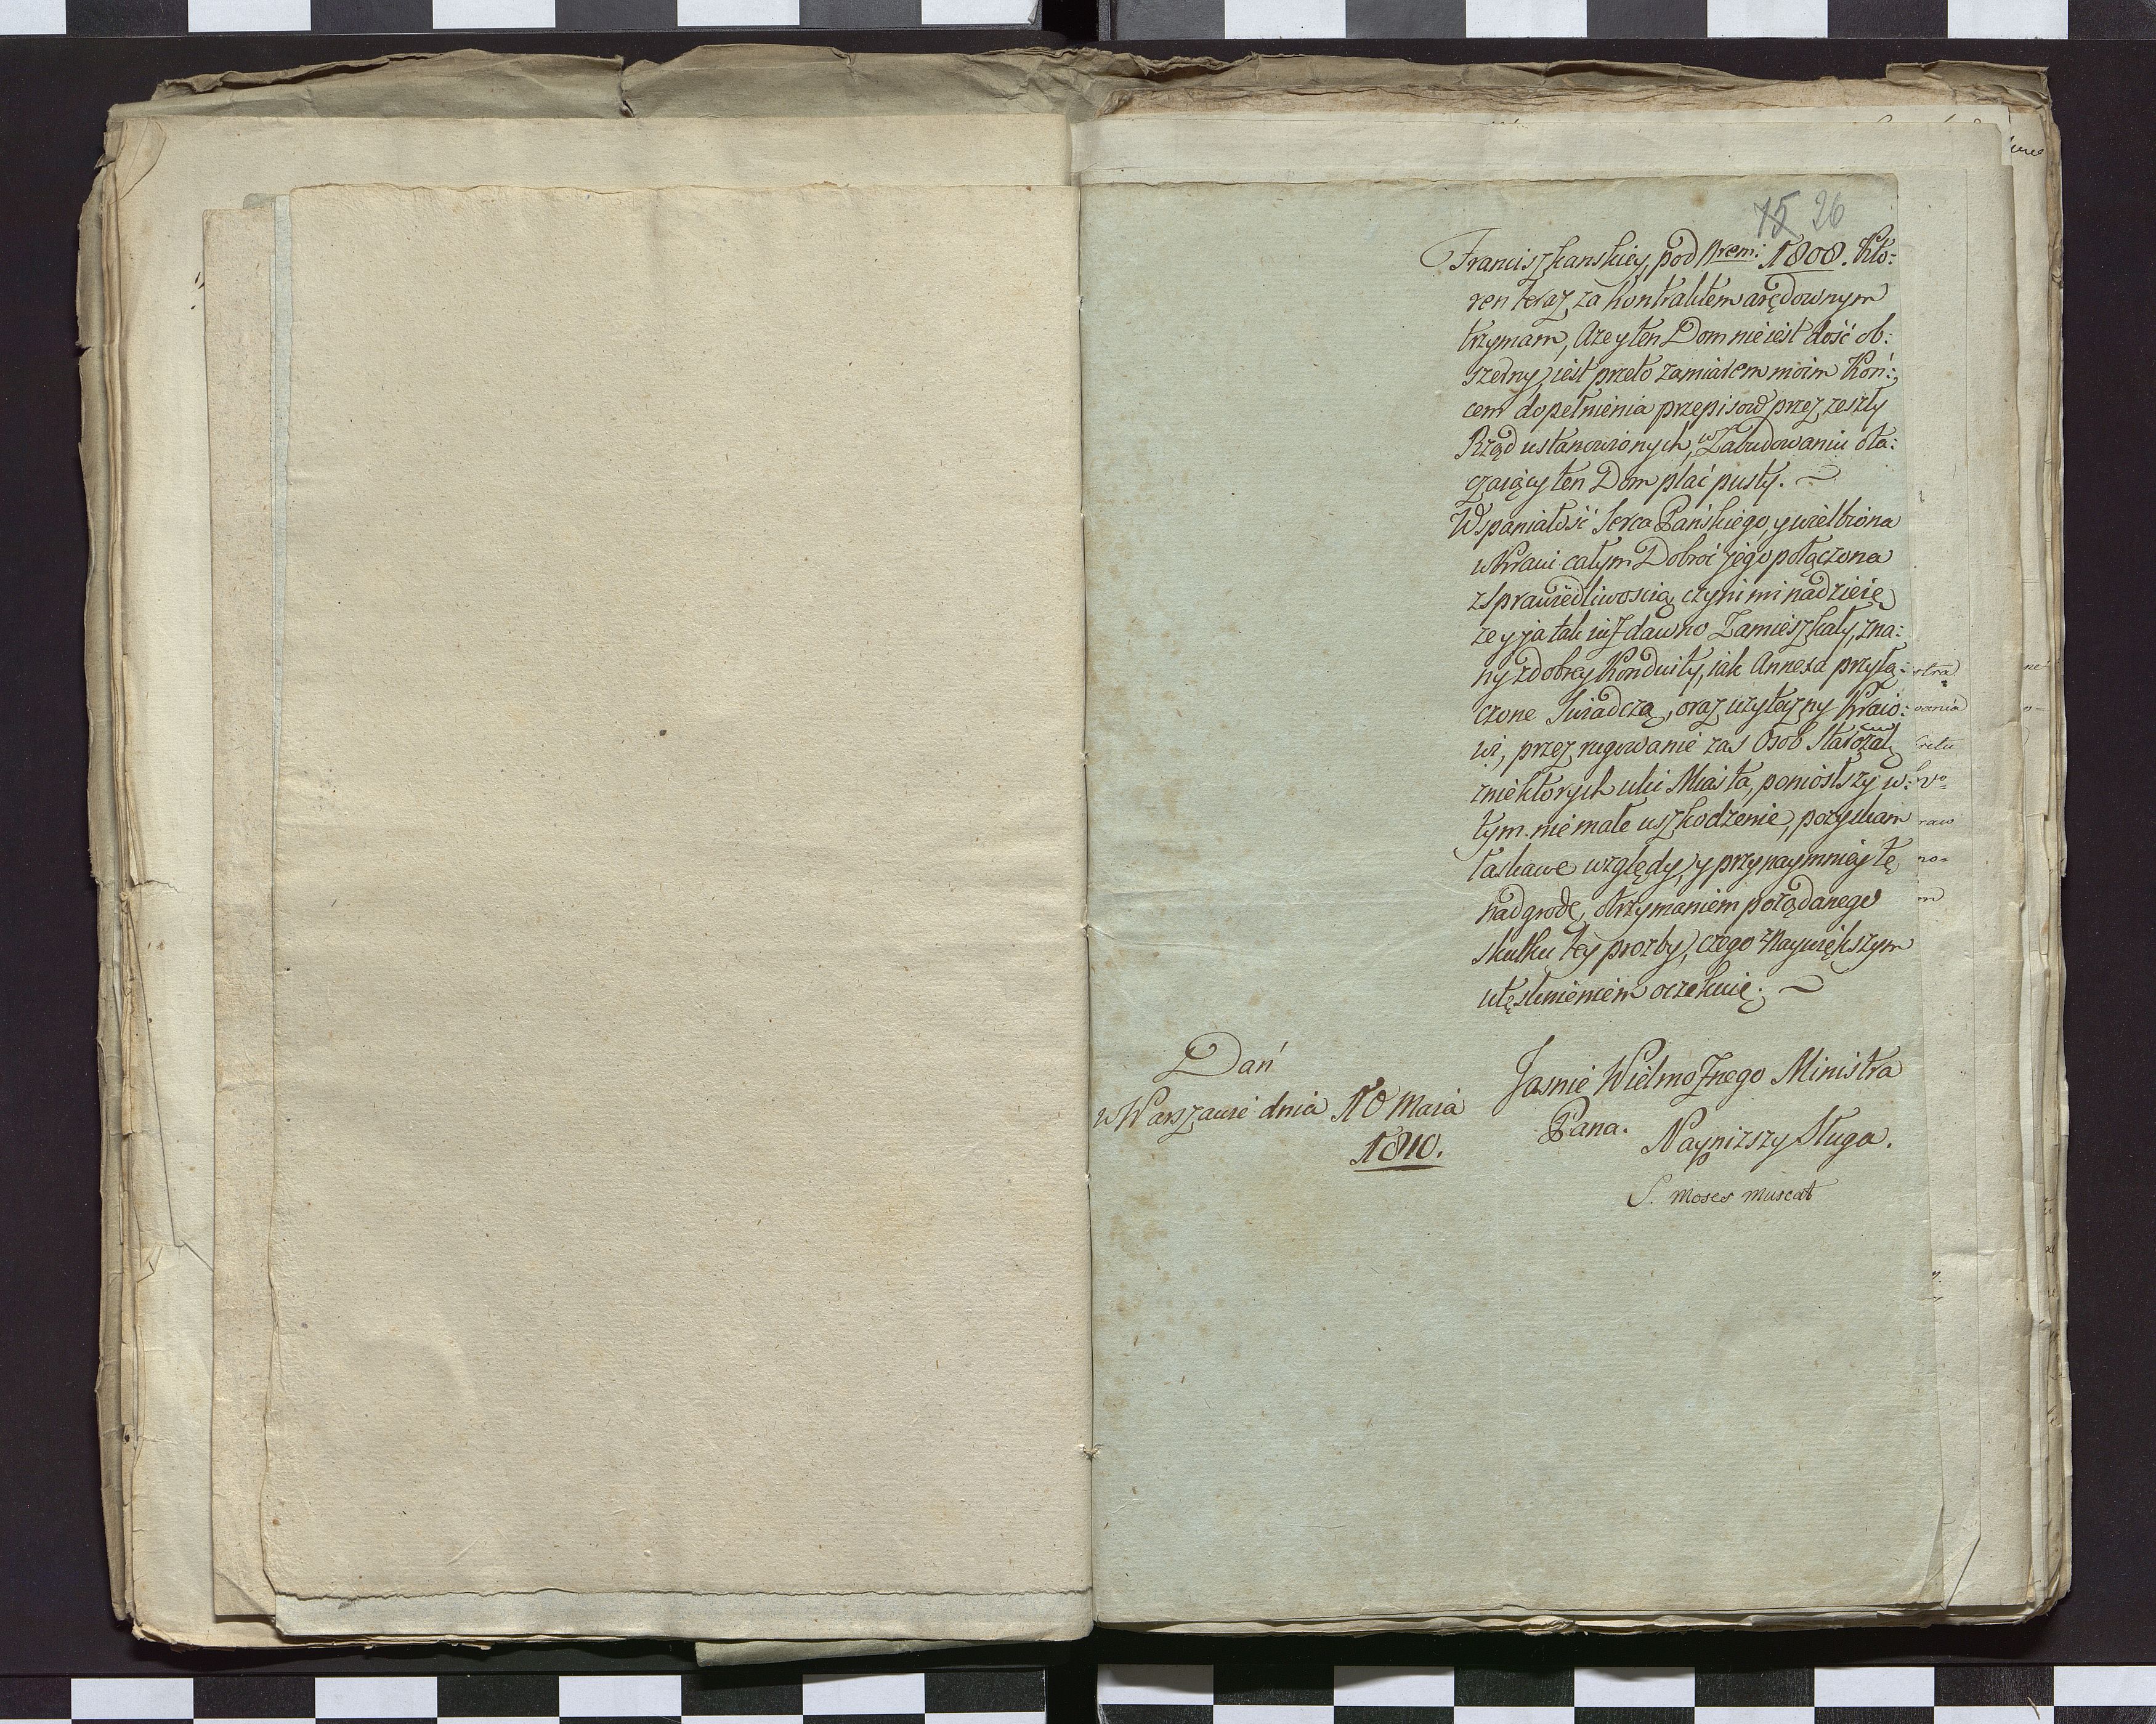 75 26
Franciszkanskiey, pod Nrem: 1808. Kto:
ren teraz za Kontraktem arędownym
trzymam, Aże y ten Dom nie iest dość ob:
szerny, iest przeto zamiarem moim Koń:
cem dopełnienia przepisow przez zeszły
Rząd ustanowionych, w Zabudowaniu ota:
czaiący ten Dom plac pusty.
Wspaniałość Serca Pańskiego, y wielbiona
w Kraiu całym Dobroć jego połączona
z Sprawiedliwoscią, czyni mi nadzieię
że y ja tak iuż dawno Zamieszkały, zna:
ny z dobrey Konduity, iak Annexa przyłą:
czone Swiadczą, oraz użyteczny Kraio:
wi, przez rugowanie zas Osob Starozak
z niektorych ulic Miasta, poniosłszy w:
tym nie małe uszkodzenie, pozyskam
łaskawe względy, y przynaymniey tę
nadgrodę, otrzymaniem pożądanego
skutku tey prozby, czego z Naywiększym
utęsknieniem oczekuię.
Dań
w Warszawie dnia 10 Maia
1810.
Jasnie Wielmożnego Ministra
Pana.
Nayniższy Sługa.
S. moses muscat